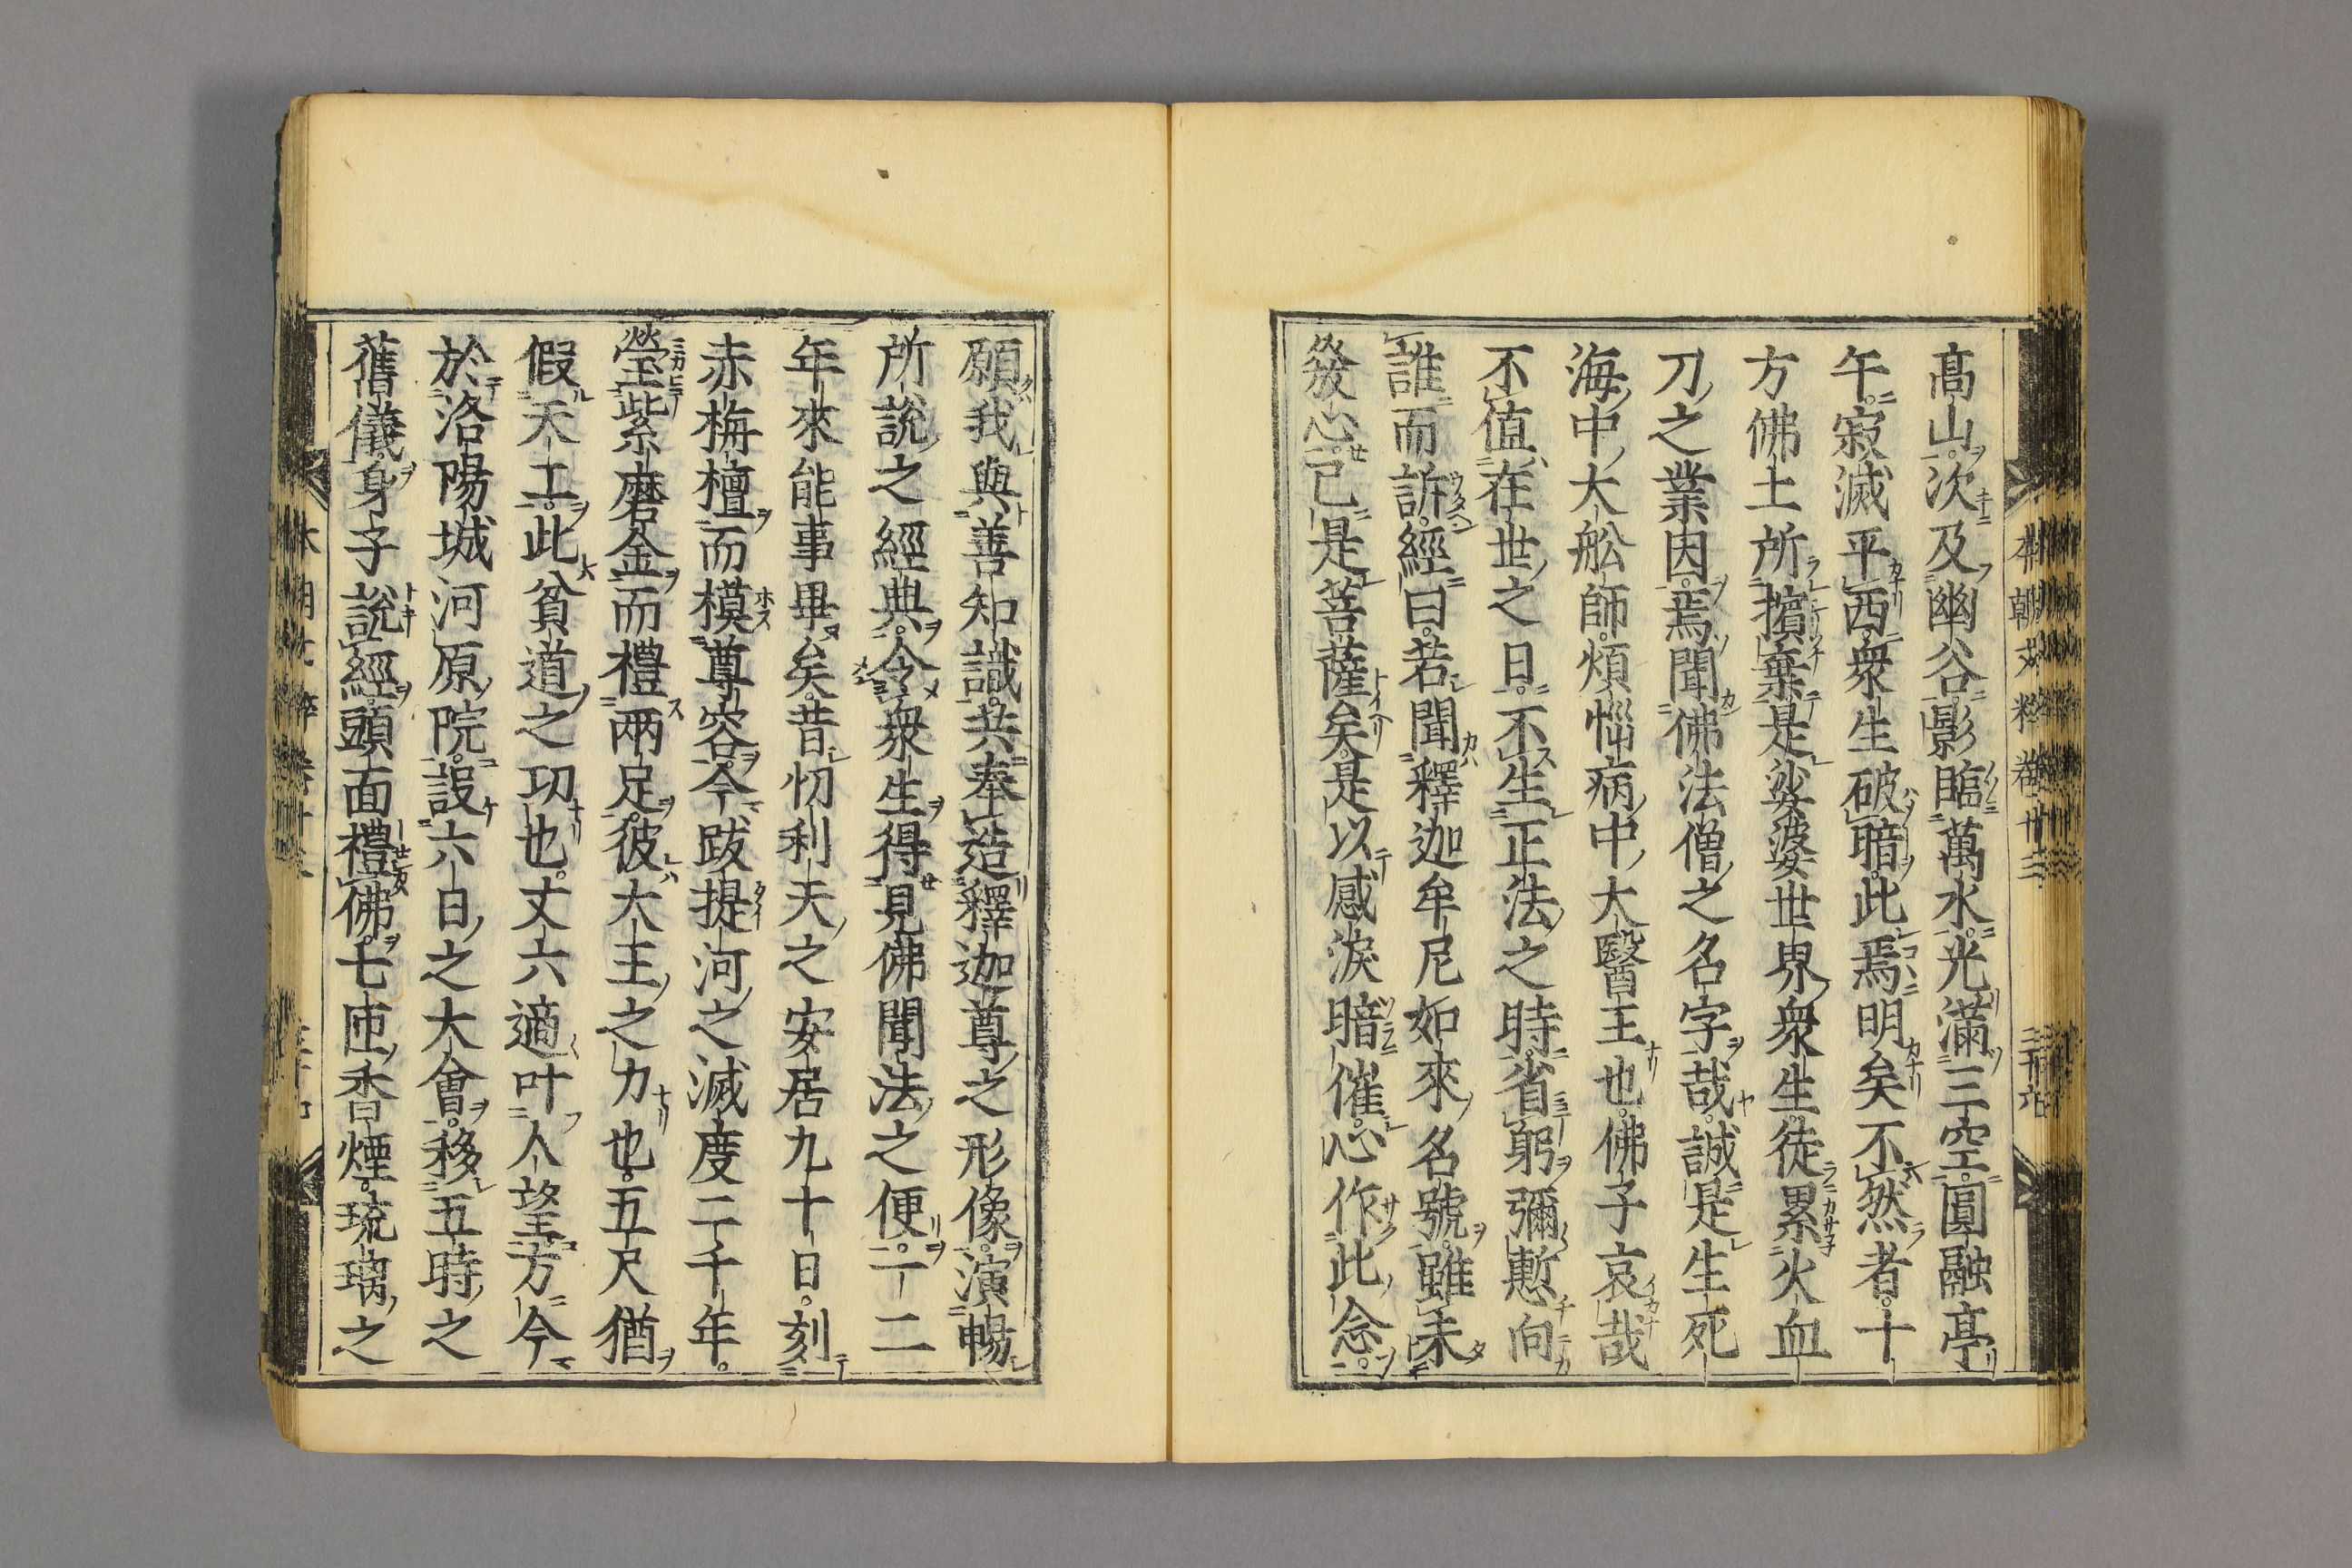 高山次及幽谷影臨萬水光滿三空圓融亭
午寂滅平西衆生破暗此焉明矣不然者十
方佛土所擯棄是娑婆世界衆生徒累火血
刀之業因焉聞佛法僧之名字哉誠是生死
海中大舩師煩惱病中大醫王也佛子哀哉
不值在世之日不生正法之時省躬彌慙向
誰而訴經曰若聞釋迦牟尼如來名號雖未
發心已是菩薩矣是以感淚暗催心作此念
願我與善知識共奉造釋迦尊之形像演暢
所說之經典令衆生得見佛聞法之便一二
年來能事畢矣昔忉利天之安居九十日刻
赤栴檀而模尊容今跋提河之滅度二千年
瑩紫磨金而禮兩足彼大王之力也五尺猶
假天工此貧道之功也丈六適叶人望方今
於洛陽城河原院設六日之大會移五時之
舊儀身子說經頭面禮佛七匝香煙琉璃之
本朝文粹卷十三